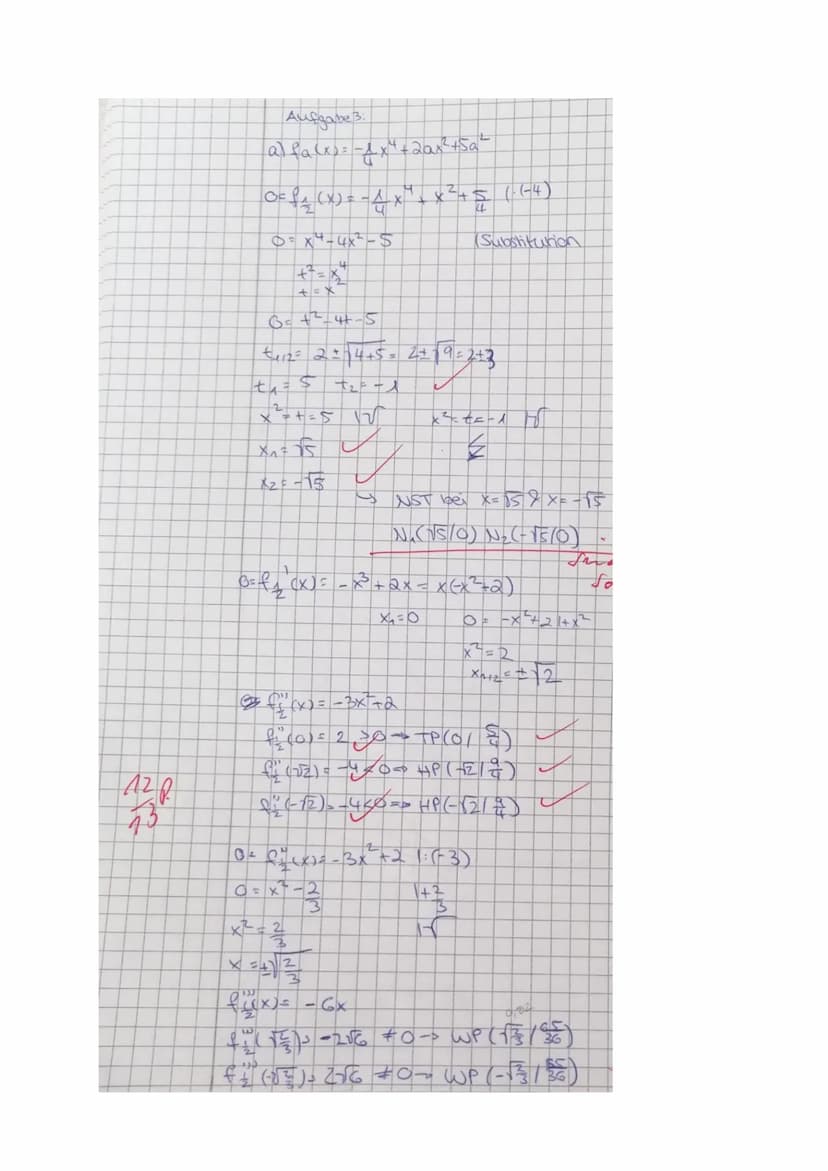 Aufgabe 3.
a) fa(x) = -1/4 x⁴ + 2ax² + 5a²
0 = f1/2(x) = -1/4 x⁴ + x² + 5/4 | ·(-4)
0 = x⁴ - 4x² - 5 | Substitution
t² = x⁴
t = x²
0 = t² - 4t - 5
t1/2 = 2 ± √(4+5) = 2 ± √9 = 2 ± 3
t₁ = 5 t₂ = -1
x² = t = 5 |√ x² = t = -1 |√
x₁ = √5
x₂ = -√5
→ NST bei x = √5 & x = -√5
N₁(√5/0) N₂(-√5/0)
0 = f1/2'(x) = -x³ + 2x = x(-x²+2)
x₁ = 0 0 = -x² + 2 | +x²
x² = 2
x1/2 = ±√2
f1/2''(x) = -3x² + 2
f1/2''(0) = 2 > 0 → TP(0 / 5/4)
f1/2''(√2) = -4 < 0 => HP(√2 / 9/4)
f1/2''(-√2) = -4 < 0 => HP(-√2 / 9/4)
12/13 P.
0 = f1/2''(x) = -3x² + 2 | :(-3)
0 = x² - 2/3 | + 2/3
x² = 2/3 |√
x = ±√(2/3)
f1/2'''(x) = -6x
f1/2'''(√(2/3)) = -2√6 ≠ 0 → WP(√(2/3) / 65/36)
f1/2'''(-√(2/3)) = 2√6 ≠ 0 → WP(-√(2/3) / 65/36)